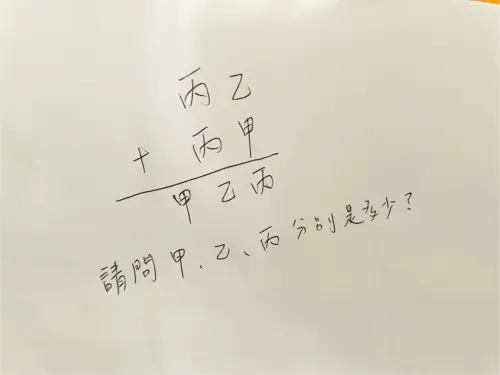 丙乙
+ 丙甲
甲乙丙
請問甲、乙、丙分別是多少?